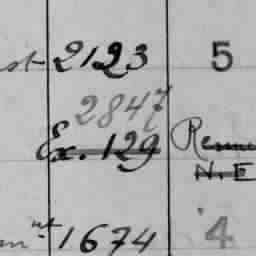 st 2123 5
2847
Ex. 129
N. E
1674 4